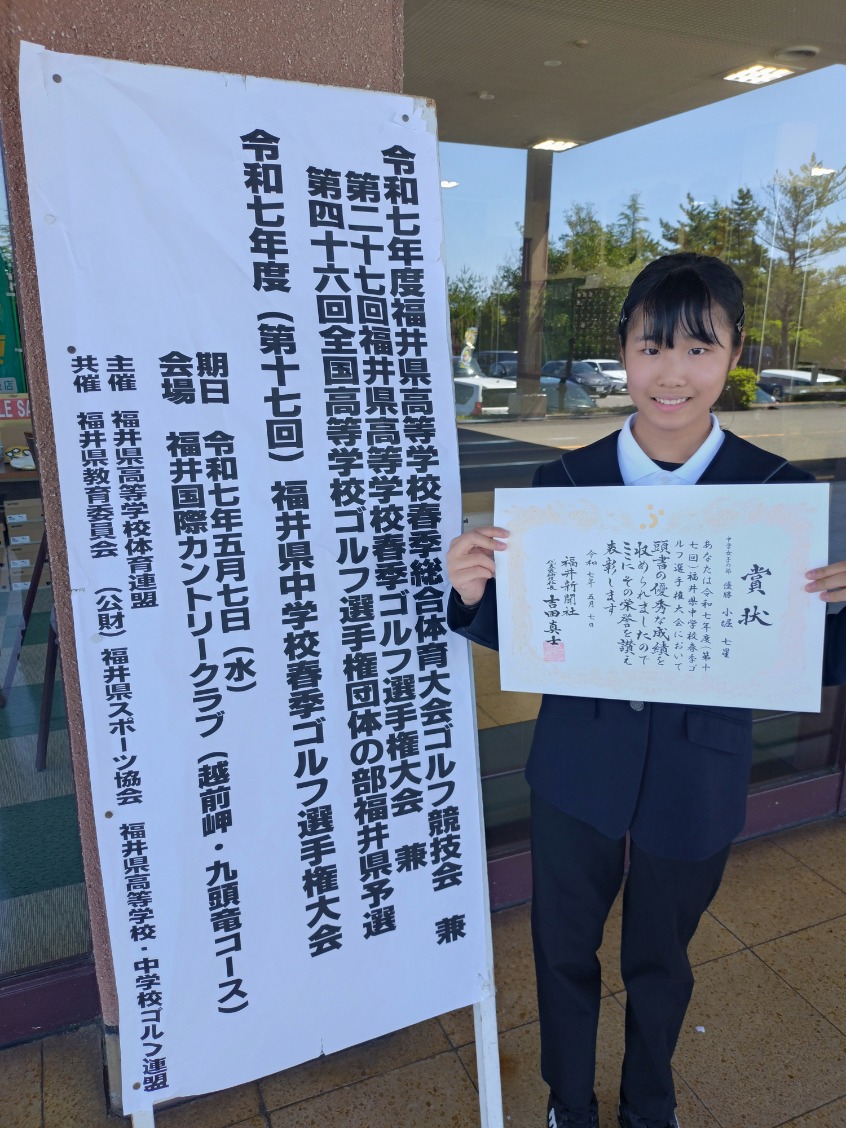 令和七年度福井県高等学校春季総合体育大会ゴルフ競技会　兼
第二十七回福井県高等学校春季ゴルフ選手権大会　兼
第四十六回全国高等学校ゴルフ選手権団体の部福井県予選
令和七年度（第十七回）福井県中学校春季ゴルフ選手権大会
期日　令和七年五月七日（水）
会場　福井国際カントリークラブ（越前岬・九頭竜コース）
主催　福井県高等学校体育連盟
共催　福井県教育委員会　（公財）福井県スポーツ協会　福井県高等学校・中学校ゴルフ連盟
賞状
中学女子の部　優勝　小堀　七星
あなたは令和七年度（第十
七回）福井県中学校春季ゴ
ルフ選手権大会において
頭書の優秀な成績を
収められましたので
ここにその栄誉を讃え
表彰します
令和七年五月七日
福井新聞社
吉田真士